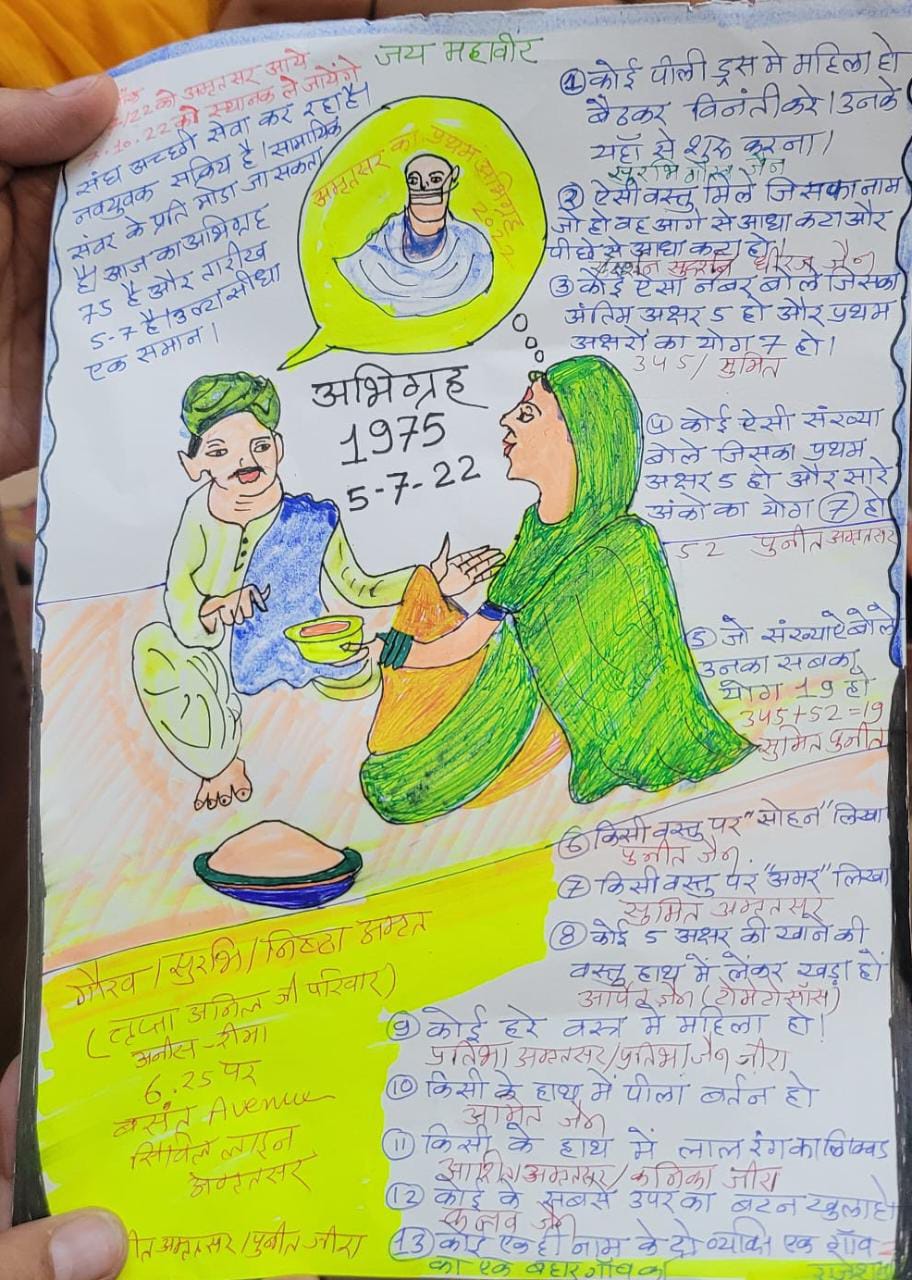 जय महावीर
/22 को अमृतसर आये
7.10.22 को स्थानक ले जायेंगे
संघ अच्छी सेवा कर रहा है।
नवयुवक सक्रिय है। सामायिक
संवर के प्रति मोडा जा सकता
है। आज का अभिग्रह
75 है और तारीख
5-7 है। उल्टा सीधा
एक समान।
अमृतसर का प्रथम अभिग्रह
2022
अभिग्रह
1975
5-7-22
① कोई पीली ड्रस मे महिला हो
बैठकर विनंती करे। उनके
यहाँ से शुरू करना।
सुरभि गौरव जैन
② ऐसी वस्तु मिले जिसका नाम
जो हो वह आगे से आधा कटा और
पीछे से आधा कटा हो
धीरज जैन
③ कोई ऐसा नंबर बोले जिसका
अंतिम अक्षर 5 हो और प्रथम
अक्षरों का योग 7 हो।
345/ सुमित
④ कोई ऐसी संख्या
बोले जिसका प्रथम
अक्षर 5 हो और सारे
अंको का योग ⑦ हो
52 पुनीत अमृतसर
⑤ जो संख्याऐ बोले
उनका सबका
योग 19 हो
345+52=19
सुमित पुनीत
⑥ किसी वस्तु पर "सोहन" लिखा
पुनीत जैन
⑦ किसी वस्तु पर "अमर" लिखा
सुमित अमृतसर
⑧ कोई 5 अक्षर की खाने की
वस्तु हाथ में लेकर खड़ा हो
जैन (टोमेटो सॉस)
⑨ कोई हरे वस्त्र मे महिला हो।
प्रतिभा अमृतसर/प्रतिभा जैन जीरा
⑩ किसी के हाथ में पीला बर्तन हो
जैन
⑪ किसी के हाथ में लाल रंग का
अमृतसर/कनिका जीरा
⑫ कोई के सबसे उपर का बटन खुला हो
जैन
⑬ कोई एक ही नाम के दो व्यक्ति एक गाँव
का एक बहार गाँव का
गौरव/सुरभि/निष्ठा
(तृप्ता अनिल जी परिवार)
अनीस-रीमा
6.25 पर
बसंत Avenue
सिविल लाइन
अमृतसर
अमृतसर/पुनीत जीरा